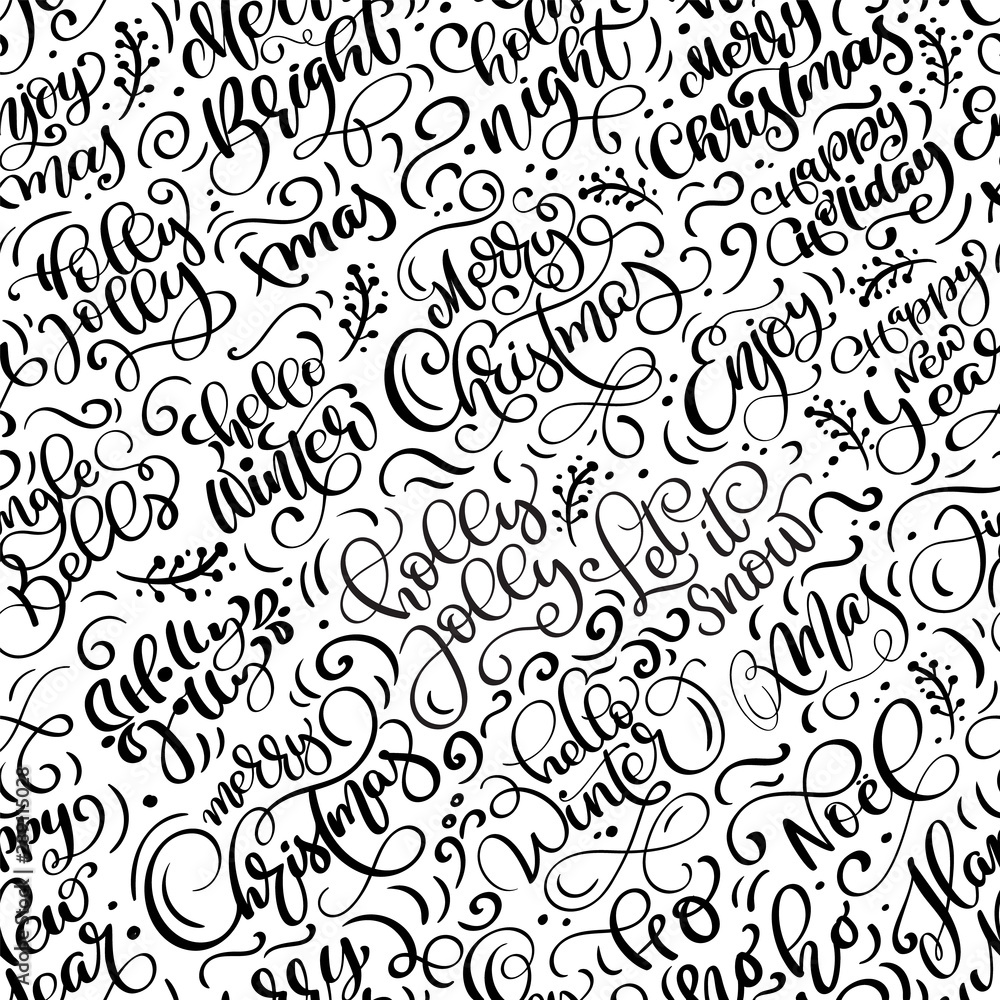 Bright
holi
night
Merry
Christmas
njoy
mas
Happy
Holiday
Holly
Jolly
xmas
Merry
Christmas
Enjoy
Happy
New
Year
hello
Winter
ngle
Bells
holly
jolly
Let it
snow
Holly
Jolly
XMas
merry
Christmas
hello
Winter
Noël
ppy
ew
ear
Ho
ho